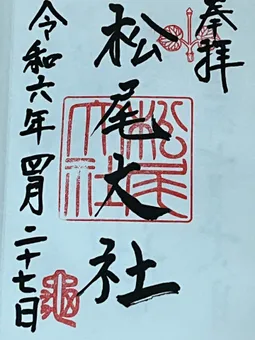 奉拝
松尾大社
令和六年四月二十七日
松尾大社